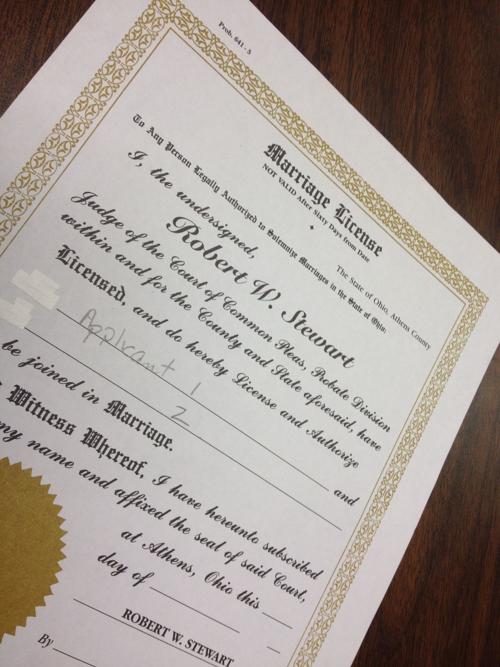 Prob. 641 - 5
Marriage License
NOT VALID After Sixty Days from Date
The State of Ohio, Athens County
To Any Person Legally Authorized to Solemnize Marriages in the State of Ohio:
I, the undersigned,
Robert W. Stewart
Judge of the Court of Common Pleas, Probate Division
within and for the County and State aforesaid, have
Licensed, and do hereby License and Authorize
Applicant 1
and
2
be joined in Marriage.
Witness Whereof, I have hereunto subscribed
my name and affixed the seal of said Court,
at Athens, Ohio this
day of
ROBERT W. STEWART
By